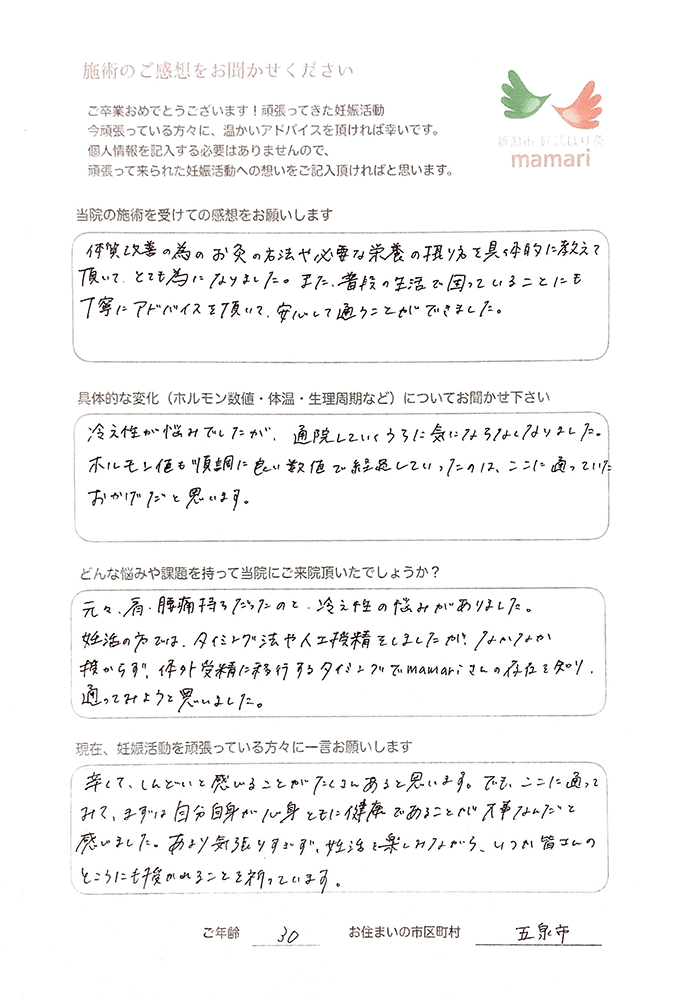 施術のご感想をお聞かせください
ご卒業おめでとうございます！頑張ってきた妊娠活動
今頑張っている方々に、温かいアドバイスを頂ければ幸いです。
個人情報を記入する必要はありませんので、
頑張って来られた妊娠活動への想いをご記入頂ければと思います。
新潟市 妊活はり灸
mamari
当院の施術を受けての感想をお願いします
体質改善の為のお灸の方法や必要な栄養の摂り方を具体的に教えて
頂いて、とても為になりました。また、普段の生活で困っていることにも
丁寧にアドバイスを頂いて、安心して通うことができました。
具体的な変化（ホルモン数値・体温・生理周期など）についてお聞かせ下さい
冷え性が悩みでしたが、通院していくうちに気にならなくなりました。
ホルモン値も順調に良い数値で経過していったのは、ここに通っていた
おかげだと思います。
どんな悩みや課題を持って当院にご来院頂いたでしょうか？
元々、肩・腰痛持ちだったのと、冷え性の悩みがありました。
妊活の方では、タイミング法や人工授精をしましたが、なかなか
授からず、体外受精に移行するタイミングでmamariさんの存在を知り、
通ってみようと思いました。
現在、妊娠活動を頑張っている方々に一言お願いします
辛くて、しんどいと感じることがたくさんあると思います。でも、ここに通って
みて、まずは自分自身が心身ともに健康であることが大事なんだと
感じました。あまり気張りすぎず、妊活を楽しみながら、いつか皆さんの
ところにも授かれることを祈っています。
ご年齢 30 お住まいの市区町村 五泉市